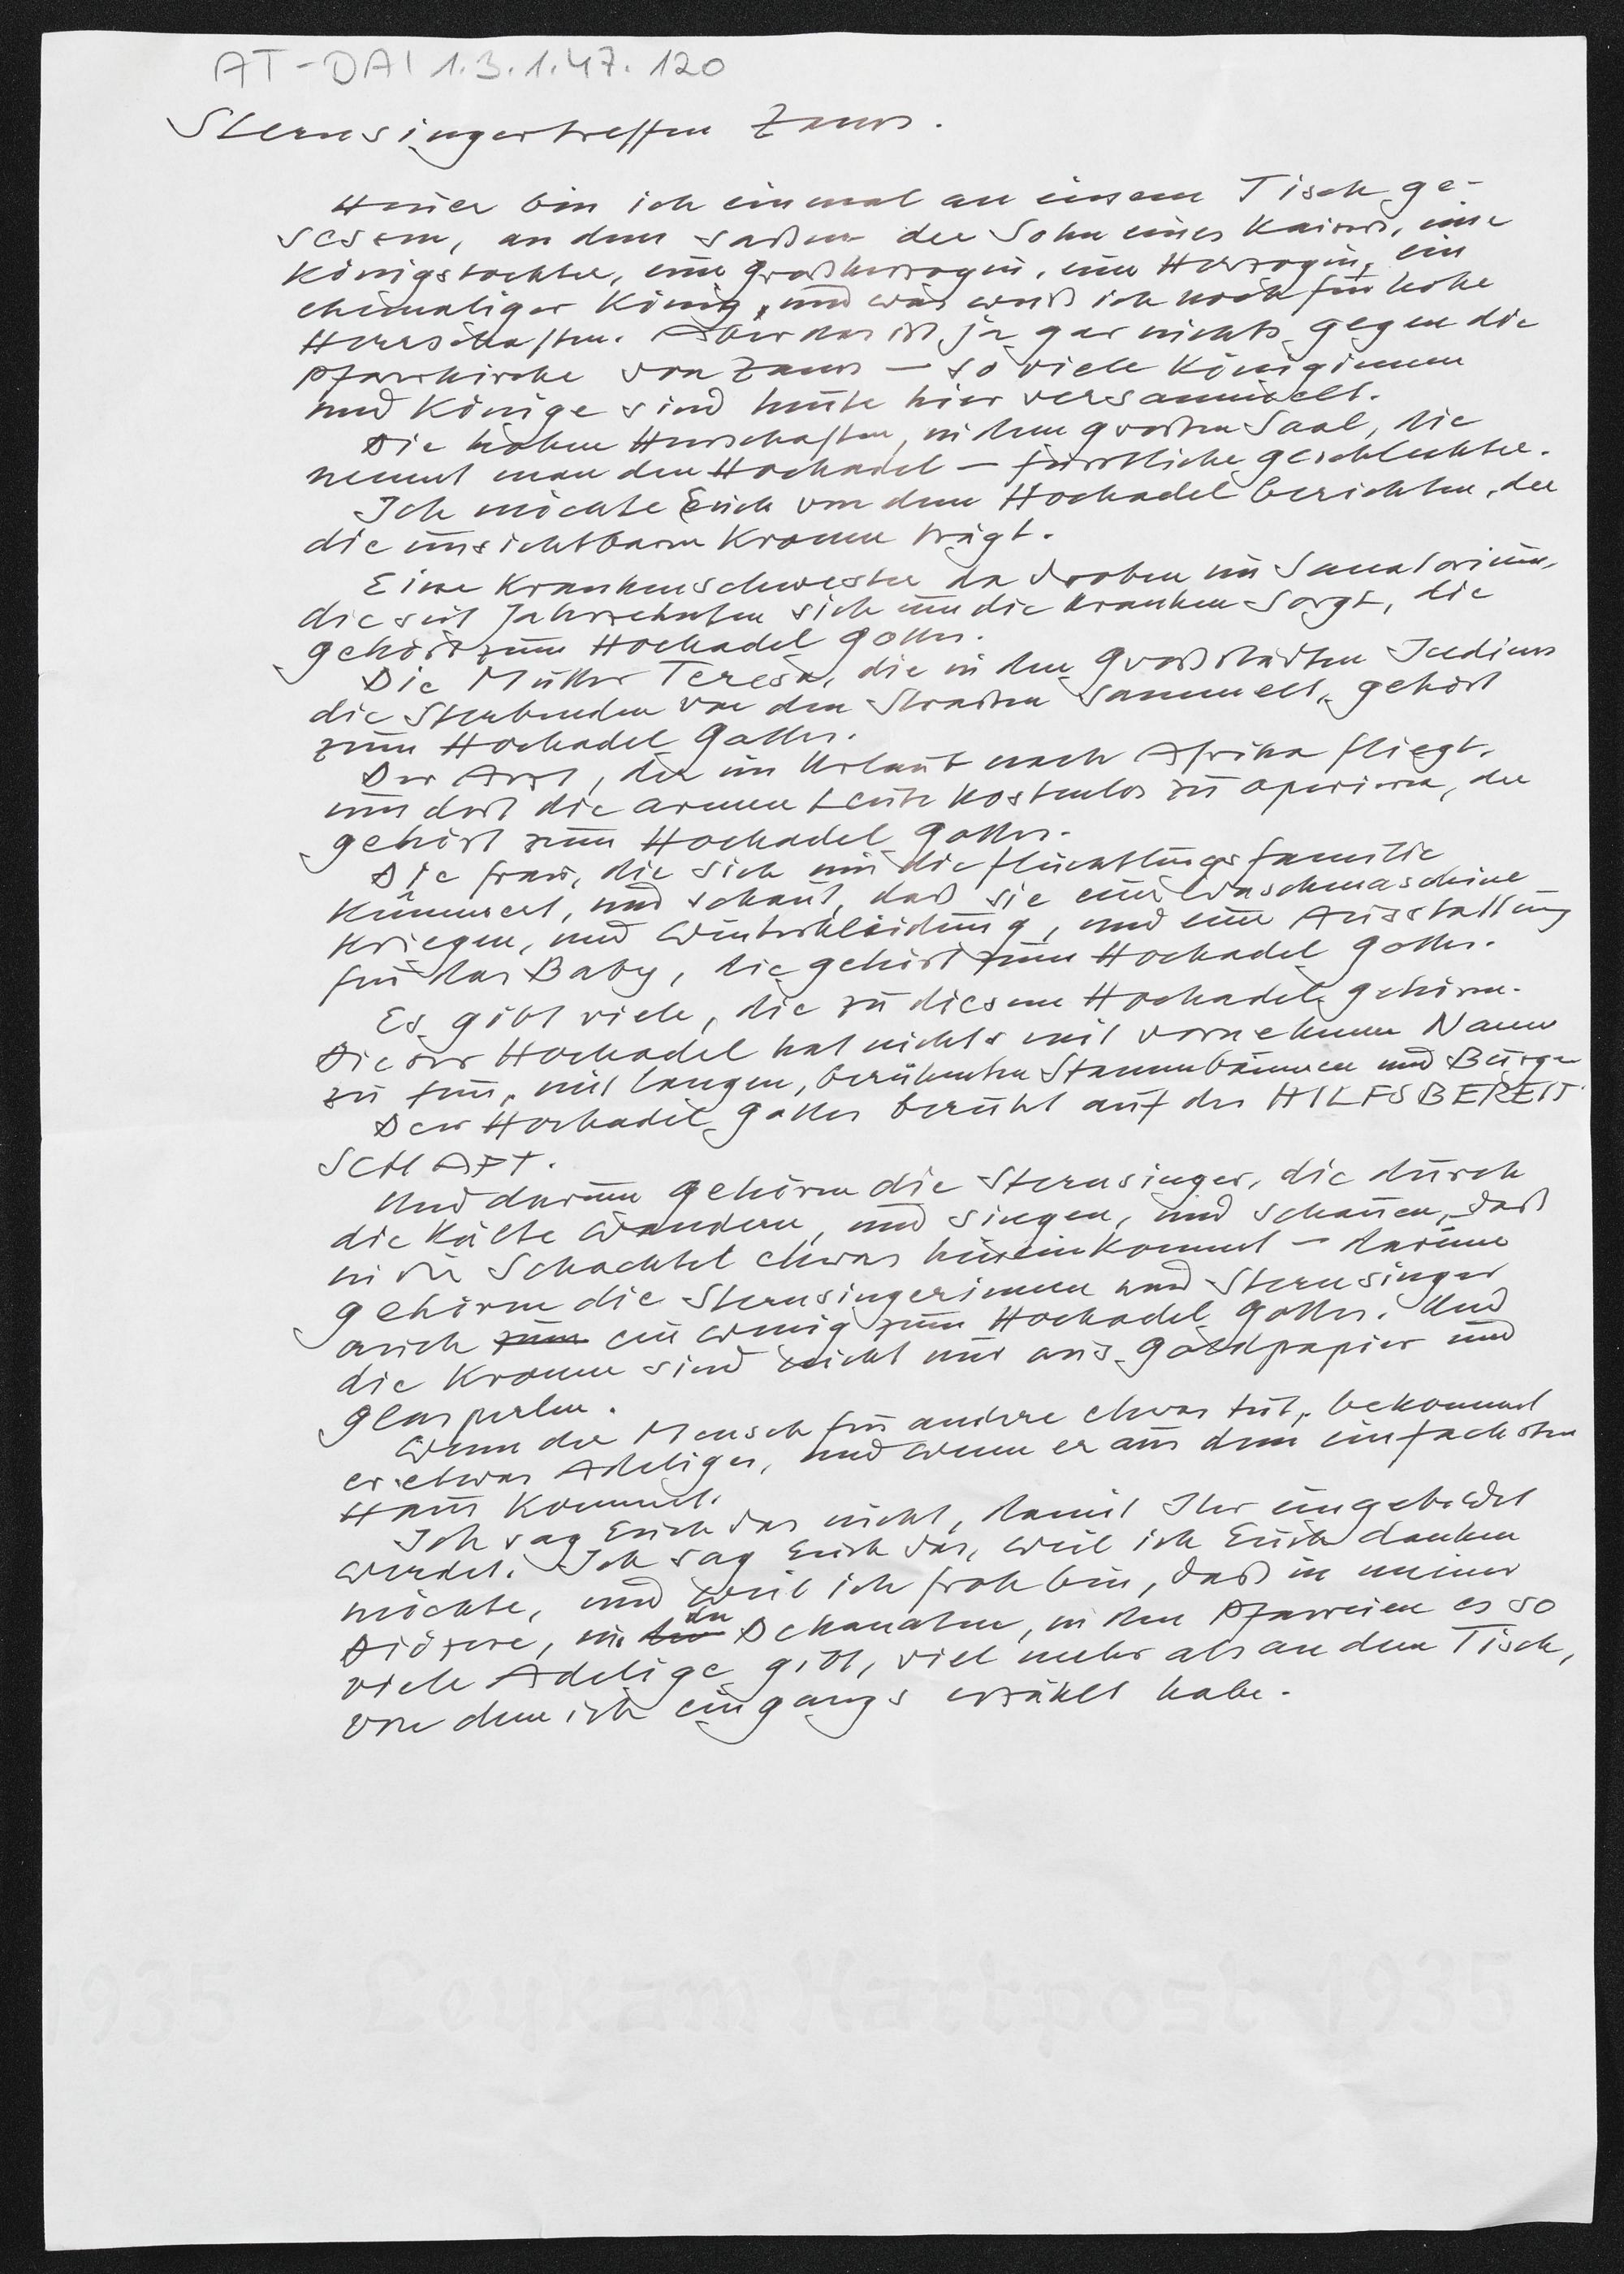 AT-DAI 1.3.1.47.120
Sternsingertreffen Zams.
Heuer bin ich einmal an einem Tisch ge-
sessen, an dem saßen der Sohn eines Kaisers, eine
Königstochter, eine Großherzogin, eine Herzogin, ein
ehemaliger König, und was weiß ich noch für hohe
Herrschaften. Aber das ist ja gar nichts gegen die
Pfarrkirche von Zams – so viele Königinnen
und Könige sind heute hier versammelt.
Die hohen Herrschaften, in dem großen Saal, die
nennt man den Hochadel – fürstliche Geschlechter.
Ich möchte Euch von dem Hochadel berichten, der
die unsichtbaren Kronen trägt.
Eine Krankenschwester da droben im Sanatorium,
die seit Jahrzehnten sich um die Kranken sorgt, die
gehört zum Hochadel Gottes.
Die Mutter Teresa, die in den Großstädten Indiens
die Sterbenden von den Straßen sammelt, gehört
zum Hochadel Gottes.
Der Arzt, der im Urlaub nach Afrika fliegt,
um dort die armen Leute kostenlos zu operieren, der
gehört zum Hochadel Gottes.
Die Frau, die sich um die Flüchtlingsfamilie
kümmert, und schaut, daß sie eine Waschmaschine
kriegen, und Winterkleidung, und eine Ausstattung
für das Baby, die gehört zum Hochadel Gottes.
Es gibt viele, die zu diesem Hochadel gehören.
Dieser Hochadel hat nichts mit vornehmen Namen
zu tun, mit langen, berühmten Stammbäumen und Burgen
Der Hochadel Gottes beruht auf der HILFSBEREIT
SCHAFT.
Und darum gehören die Sternsinger, die durch
die Kälte wandern, und singen, und schauen, daß
in die Schachtel etwas hineinkommt – darum
gehören die Sternsingerinnen und Sternsinger
auch zum ein wenig zum Hochadel Gottes. Und
die Kronen sind nicht nur aus Goldpapier und
Glasperlen.
Wenn der Mensch für andere etwas tut, bekommt
er etwas Adeliges, und wenn er aus dem einfachsten
Haus kommt.
Ich sag Euch das nicht, damit Ihr eingebildet
werdet. Ich sag Euch das, weil ich Euch danken
möchte, und weil ich froh bin, daß in meiner
Diözese, in den Dekanaten, in den Pfarreien es so
viele Adelige gibt, viel mehr als an dem Tisch,
von dem ich eingangs erzählt habe.